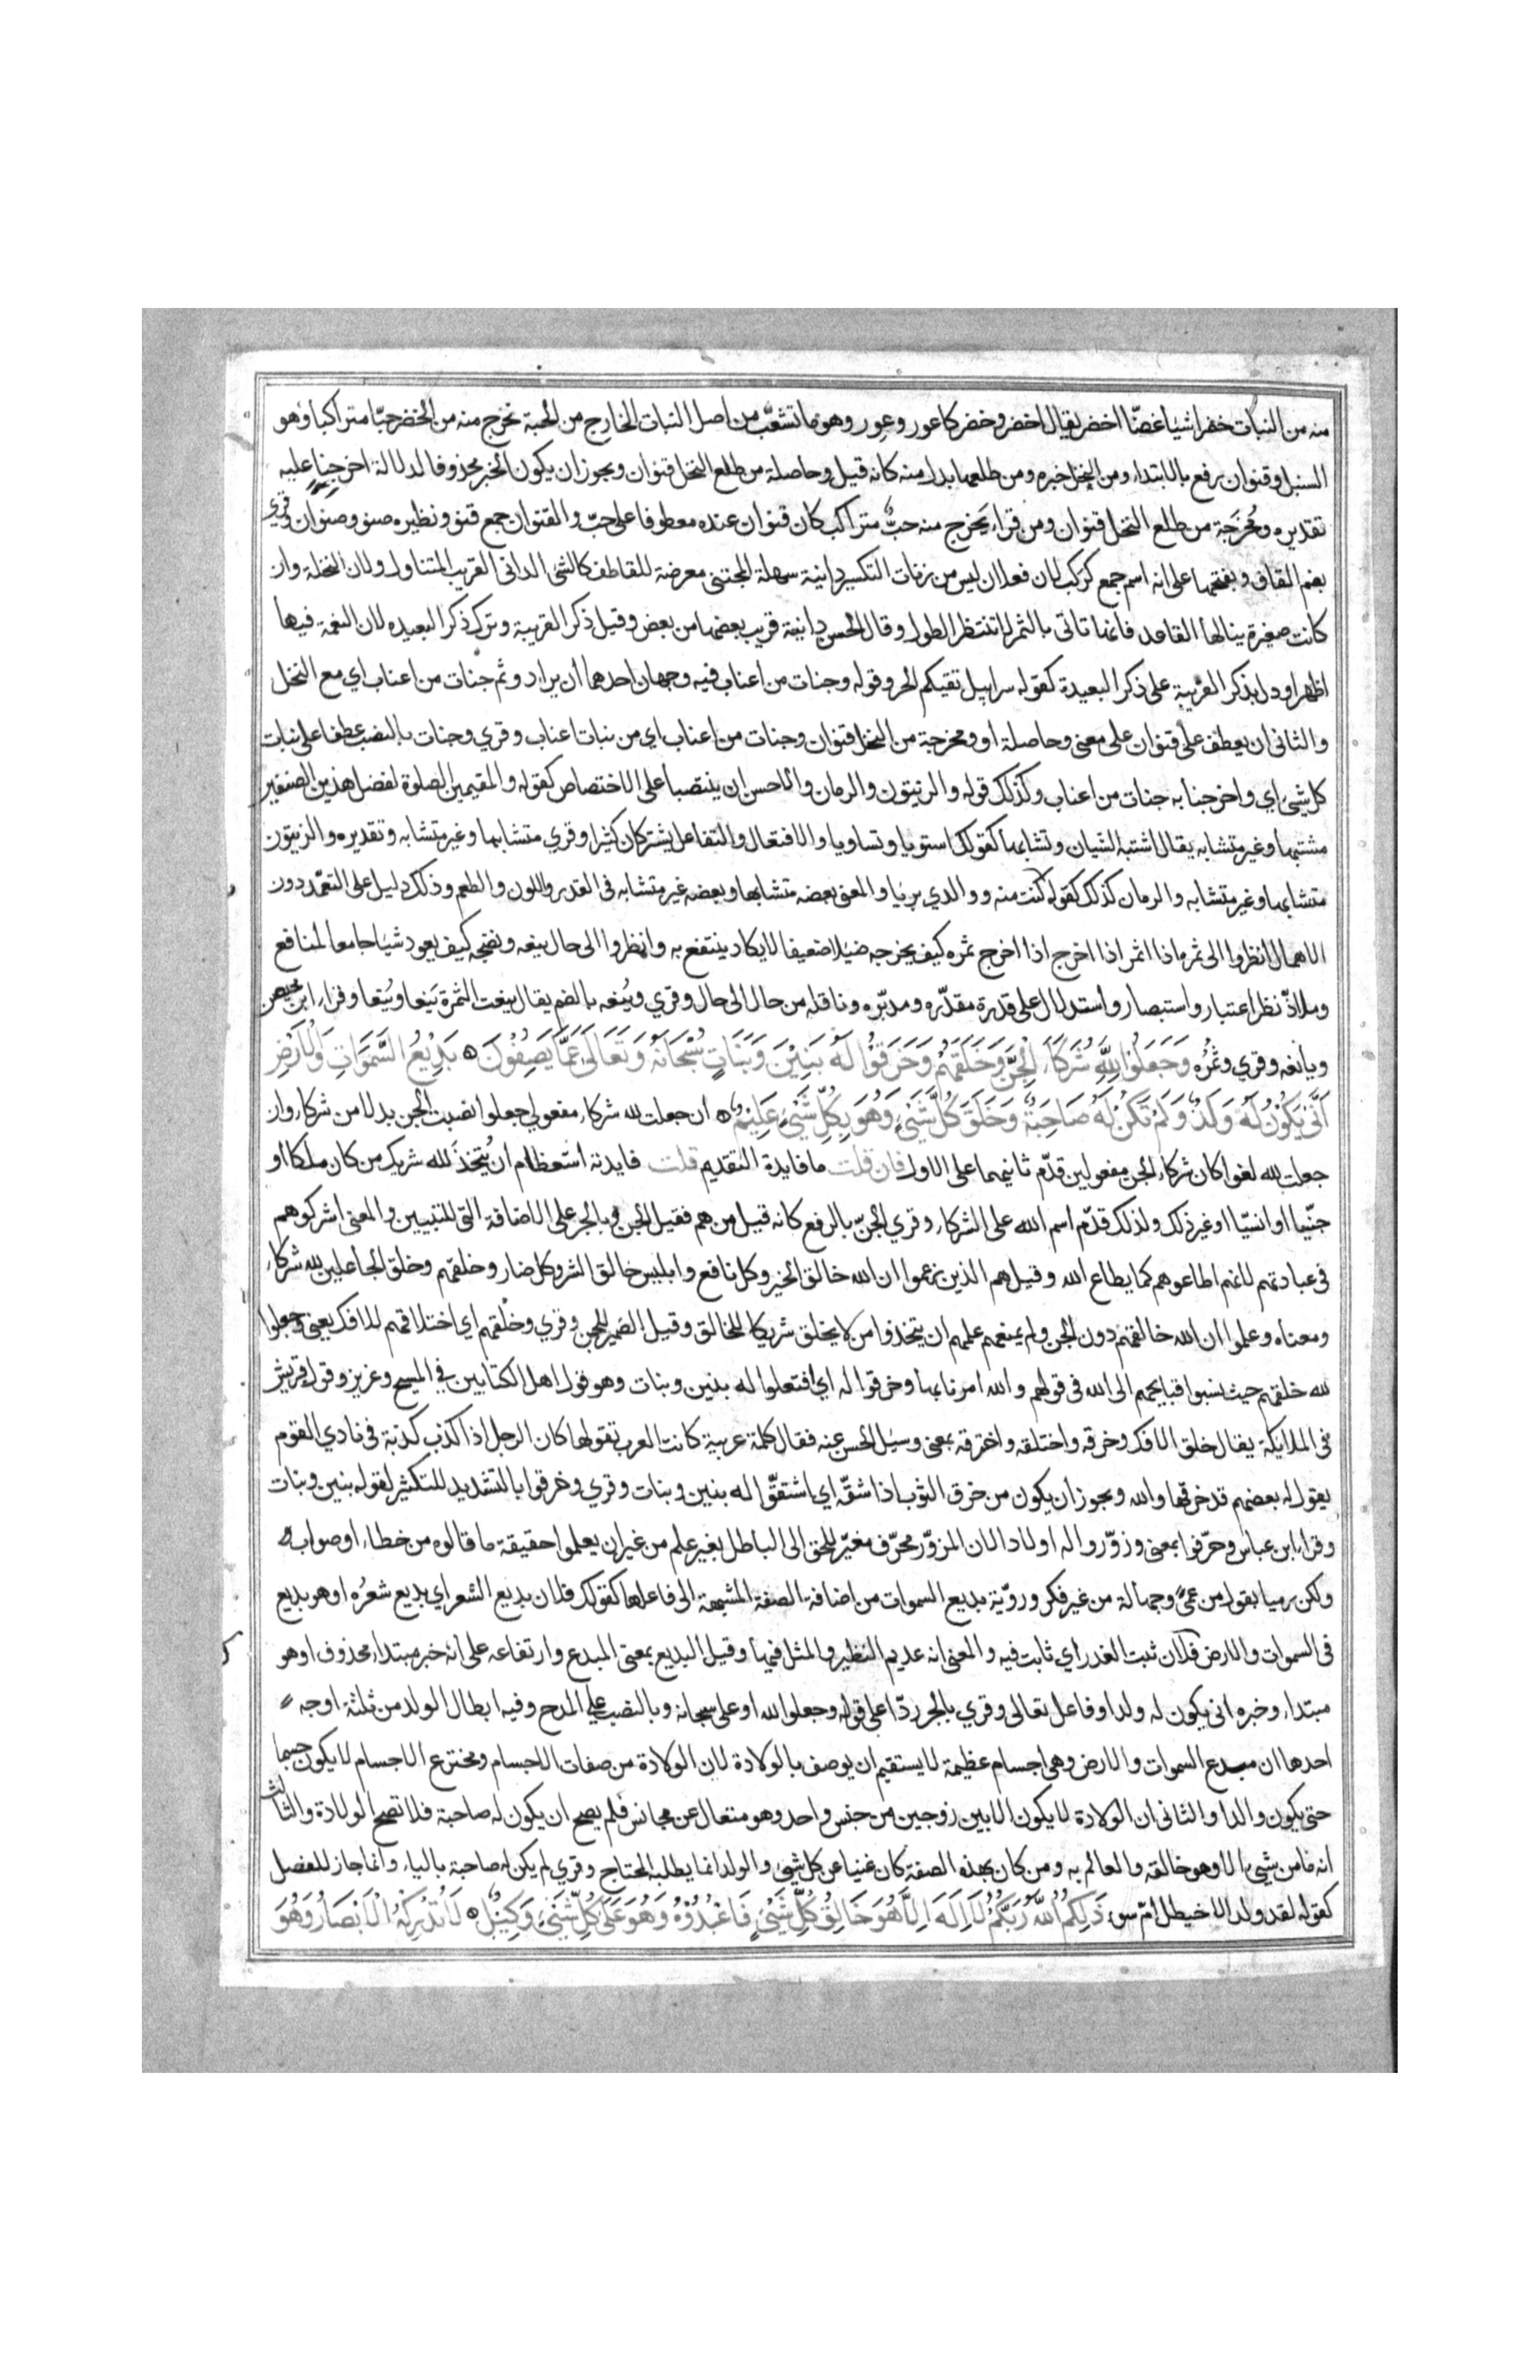 منه من النبات خضرا شيا غضّا اخضر يقال اخضر وخضر كاعور وعور وهو ما تشعّب من اصل النبات الخارج من الحبة نخرج منه من الخضر حبّا متراكبا وهو
السنبل وقنوان رفع بالابتداء ومن النخل خبره ومن طلعها بدل منه كانه قيل وحاصلة من طلع النخل قنوان ويجوز ان يكون الخبر محذوفا لدلالة اخرجنا عليه
تقديره ومُخرَجة من طلع النخل قنوان ومن قراء يَخرج منه حبٌّ متراكب كان قنوان عنده معطوفا على حبّ والقنوان جمع قنو ونظيره صنو وصنوان وقري
بضم القاف وبفتحها على انه اسم جمع كركب لان فعلان ليس من زنات التكسير دانية سهلة المجتنى معرضة للقاطف كالشئ الدانى القريب المتناول ولان النخلة وان
كانت صغيرة ينالها القاعد فانها تاتى بالثمر لا تنتظر الطول وقال الحسن دانية قريب بعضها من بعض وقيل ذكر القريبة وترك ذكر البعيده لان النعمة فيها
اظهر او دل بذكر القريبة على ذكر البعيدة كقوله سرابيل تقيكم الحر وقوله وجنات من اعناب فيه وجهان احدهما ان يراد وثم جنات من اعناب اي مع النخل
والثانى ان يعطف على قنوان على معنى وحاصلة او ومخرجة من النخل قنوان وجنات من اعناب اي من نبات اعناب وقري وجنات بالنصب عطفا على نبات
كل شئ اي واخرجنا به جنات من اعناب وكذلك قوله والزيتون والرمان والاحسن ان ينتصبا على الاختصاص كقوله والمقيمين الصلوة لفضل هذين الصنفين
مشتبها وغير متشابه يقال اشتبه الشيان وتشابها كقولك استويا وتساويا والافتعال والتفاعل يشتركان كثيرا وقري متشابها وغير متشابه وتقديره والزيتون
متشابها وغير متشابه والرمان كذلك كقوله كنت منه ووالدي بريا والمعنى بعضه متشابها وبعضه غير متشابه فى القدر واللون والطعم وذلك دليل على التعمّد دون
الاهمال انظروا الى ثمره اذا اثمر اذا اخرج اذا اخرج ثمره كيف يخرجه ضيلا ضعيفا لا يكاد ينتفع به وانظروا الى حال ينعه ونضجه كيف يعود شيا جامعا لمنافع
وملاذّ نظر اعتبار واستبصار واستدلال على قدرة مقدّره ومدبّره وناقله من حال الى حال وقري ويُنعه بالضم يقال ينعت الثمرة يَنعا ويُنعا وقراء ابن محيصن
ويانعه وقري وثُمُره وَجَعَلُوا لِلَّهِ شُرَكَاءَ الْجِنَّ وَخَلَقَهُمْ وَخَرَقُوا لَهُ بَنِيْنَ وَبَنَاتٍ سُبْحَانَهُ وَتَعَالَى عَمَّا يَصِفُوْنَ ۝ بَدِيْعُ السَّمَوَاتِ وَالْاَرْضِ
اَنَّى يَكُوْنُ لَهُ وَلَدٌ وَلَمْ تَكُنْ لَهُ صَاحِبَةٌ وَخَلَقَ كُلَّ شَيْءٍ وَهُوَ بِكُلِّ شَيْءٍ عَلِيْمٌ ۝ ان جعلت لله شركاء مفعولي جعلوا نصبت الجن بدلا من شركاء وان
جعلت لله لغوا كان شركاء الجن مفعولين قدّم ثانيهما على الاول فان قلت ما فايدة التقديم قلت فايدته استعظام ان يُتخذ لله شريك من كان ملكا او
جنّيا او انسيّا او غير ذلك ولذلك قدّم اسم الله على الشركاء وقري الجنّ بالرفع كانه قيل من هم فقيل الجن وبالجر على الاضافة التى للتبيين والمعنى اشركوهم
فى عبادتهم لانهم اطاعوهم كما يطاع الله وقيل هم الذين زعموا ان الله خالق الخير وكل نافع وابليس خالق الشر وكل ضار وخلقهم وخلق الجاعلين لله شركاء
ومعناه وعلموا ان الله خالقهم دون الجن ولم يمنعهم علمهم ان يتخذوا من لا يخلق شريكا للخالق وقيل الضمير للجن وقري وخلْقهم اي اختلاقهم للافك يعنى وجعلوا
لله خلقهم حيث نسبوا قبايحهم الى الله فى قولهم والله امرنا بها وخرقوا له اي افتعلوا له بنين وبنات وهو قول اهل الكتابين في المسيح وعزير وقول قريش
فى الملايكة يقال خلق الافك وخرقه واختلقه واخترقه بمعنى وسيل الحسن عنه فقال كلمة عربية كانت العرب تقولها كان الرجل اذا كذب كذبة فى نادي القوم
يقول له بعضهم قد خرقها والله ويجوز ان يكون من خرق الثوب اذا شقّه اي اشتقّوا له بنين وبنات وقري وخرقوا بالتشديد للتكثير لقوله بنين وبنات
وقراء ابن عباس وحرّفوا بمعنى وزوّروا له اولادا لان المزوّر محرّف مغيّر للحق الى الباطل بغير علم من غير ان يعلموا حقيقة ما قالوه من خطاء او صواب
ولكن رميا بقول من عمىً وجهالة من غير فكر ورويّة بديع السموات من اضافة الصفة المشبهة الى فاعلها كقولك فلان بديع الشعر اي بديع شعرُه او هو بديع
فى السموات والارض فلان ثبت الغدر اي ثابت فيه والمعنى انه عديم النظير والمثل فيها وقيل البديع بمعنى المبدع وارتفاعه على انه خبر مبتداء محذوف او هو
مبتداء وخبره انى يكون له ولد او فاعل تعالى وقري بالجر ردّا على قوله وجعلوا لله او على سبحانه وبالنصب على المدح وفيه ابطال الولد من ثلثة اوجه
احدها ان مبدع السموات والارض وهى اجسام عظيمة لا يستقيم ان يوصف بالولادة لان الولادة من صفات الاجسام ومخترع الاجسام لا يكون جسما
حتى يكون والدا والثانى ان الولادة لا يكون الا بين زوجين من جنس واحد وهو متعال عن مجانس فلم يصح ان يكون له صاحبة فلا تصح الولادة والثالث
انه ما من شيئ الا وهو خالقه والعالم به ومن كان بهذه الصفة كان غنيا عن كل شئ والولد انما يطلبه المحتاج وقري لم يكن له صاحبة بالياء وانما جاز للفصل
كقوله لقد ولد الاخيطل امّ سوء ذَلِكُمُ اللَّهُ رَبُّكُمْ لَا اِلَهَ اِلَّا هُوَ خَالِقُ كُلِّ شَيْءٍ فَاعْبُدُوْهُ وَهُوَ عَلَى كُلِّ شَيْءٍ وَكِيْلٌ ۝ لَا تُدْرِكُهُ الْاَبْصَارُ وَهُوَ